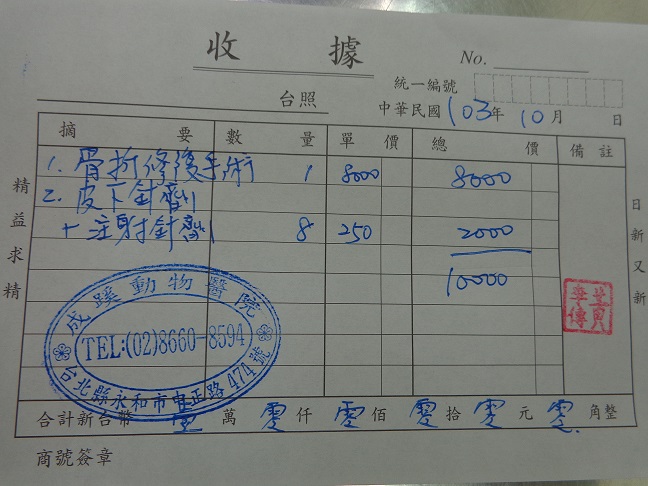 收據
No.
統一編號
台照
中華民國103年10月 日
摘要 數量 單價 總價 備註
1. 骨折修復手術 1 8000 8000
2. 皮下針劑
+注射針劑 8 250 2000
10000
精益求精
日新又新
成蹊動物醫院
TEL:(02)8660-8594
台北縣永和市中正路474號
合計新台幣 壹 萬 零 仟 零 佰 零 拾 零 元 零 角整
商號簽章